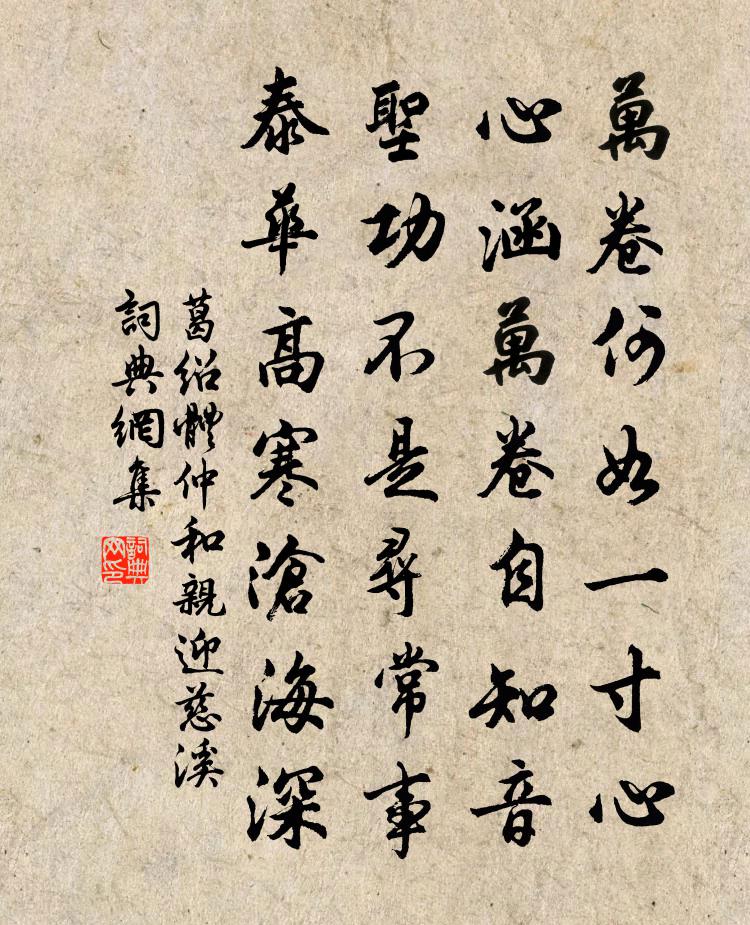 萬卷何如一寸心
心涵萬卷自知音
聖功不是尋常事
泰華高寒滄海深
葛紹體仲和親迎慈溪
詞典網集
詞典網印